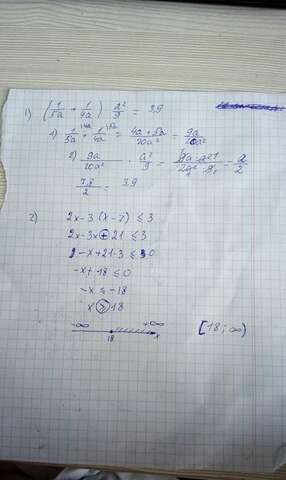 1) (1/5a + 1/4a) · a²/9 = 3,9
1) 1/5a + 1/4a = 4a + 5a / 20a² = 9a / 20a²
2) 9a / 20a² · a²/9 = = a/2
7,8/2 = 3,9
2) 2x - 3 (x - 7) ≤ 3
2x - 3x + 21 ≤ 3
- x + 21 - 3 ≤ 0
- x + 18 ≤ 0
- x ≤ - 18
x ≥ 18
-∞ +∞
18 x [18 ; ∞)